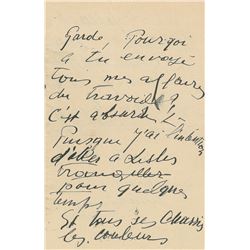 Gardé Pourquoi
a tu envoyé
tous mes affaires
du travail ?
C'est absurde
Puisque j'ai l'intention
d'aller à
travailler
pour quelques
temps
Et tous ses chassis
les couleurs